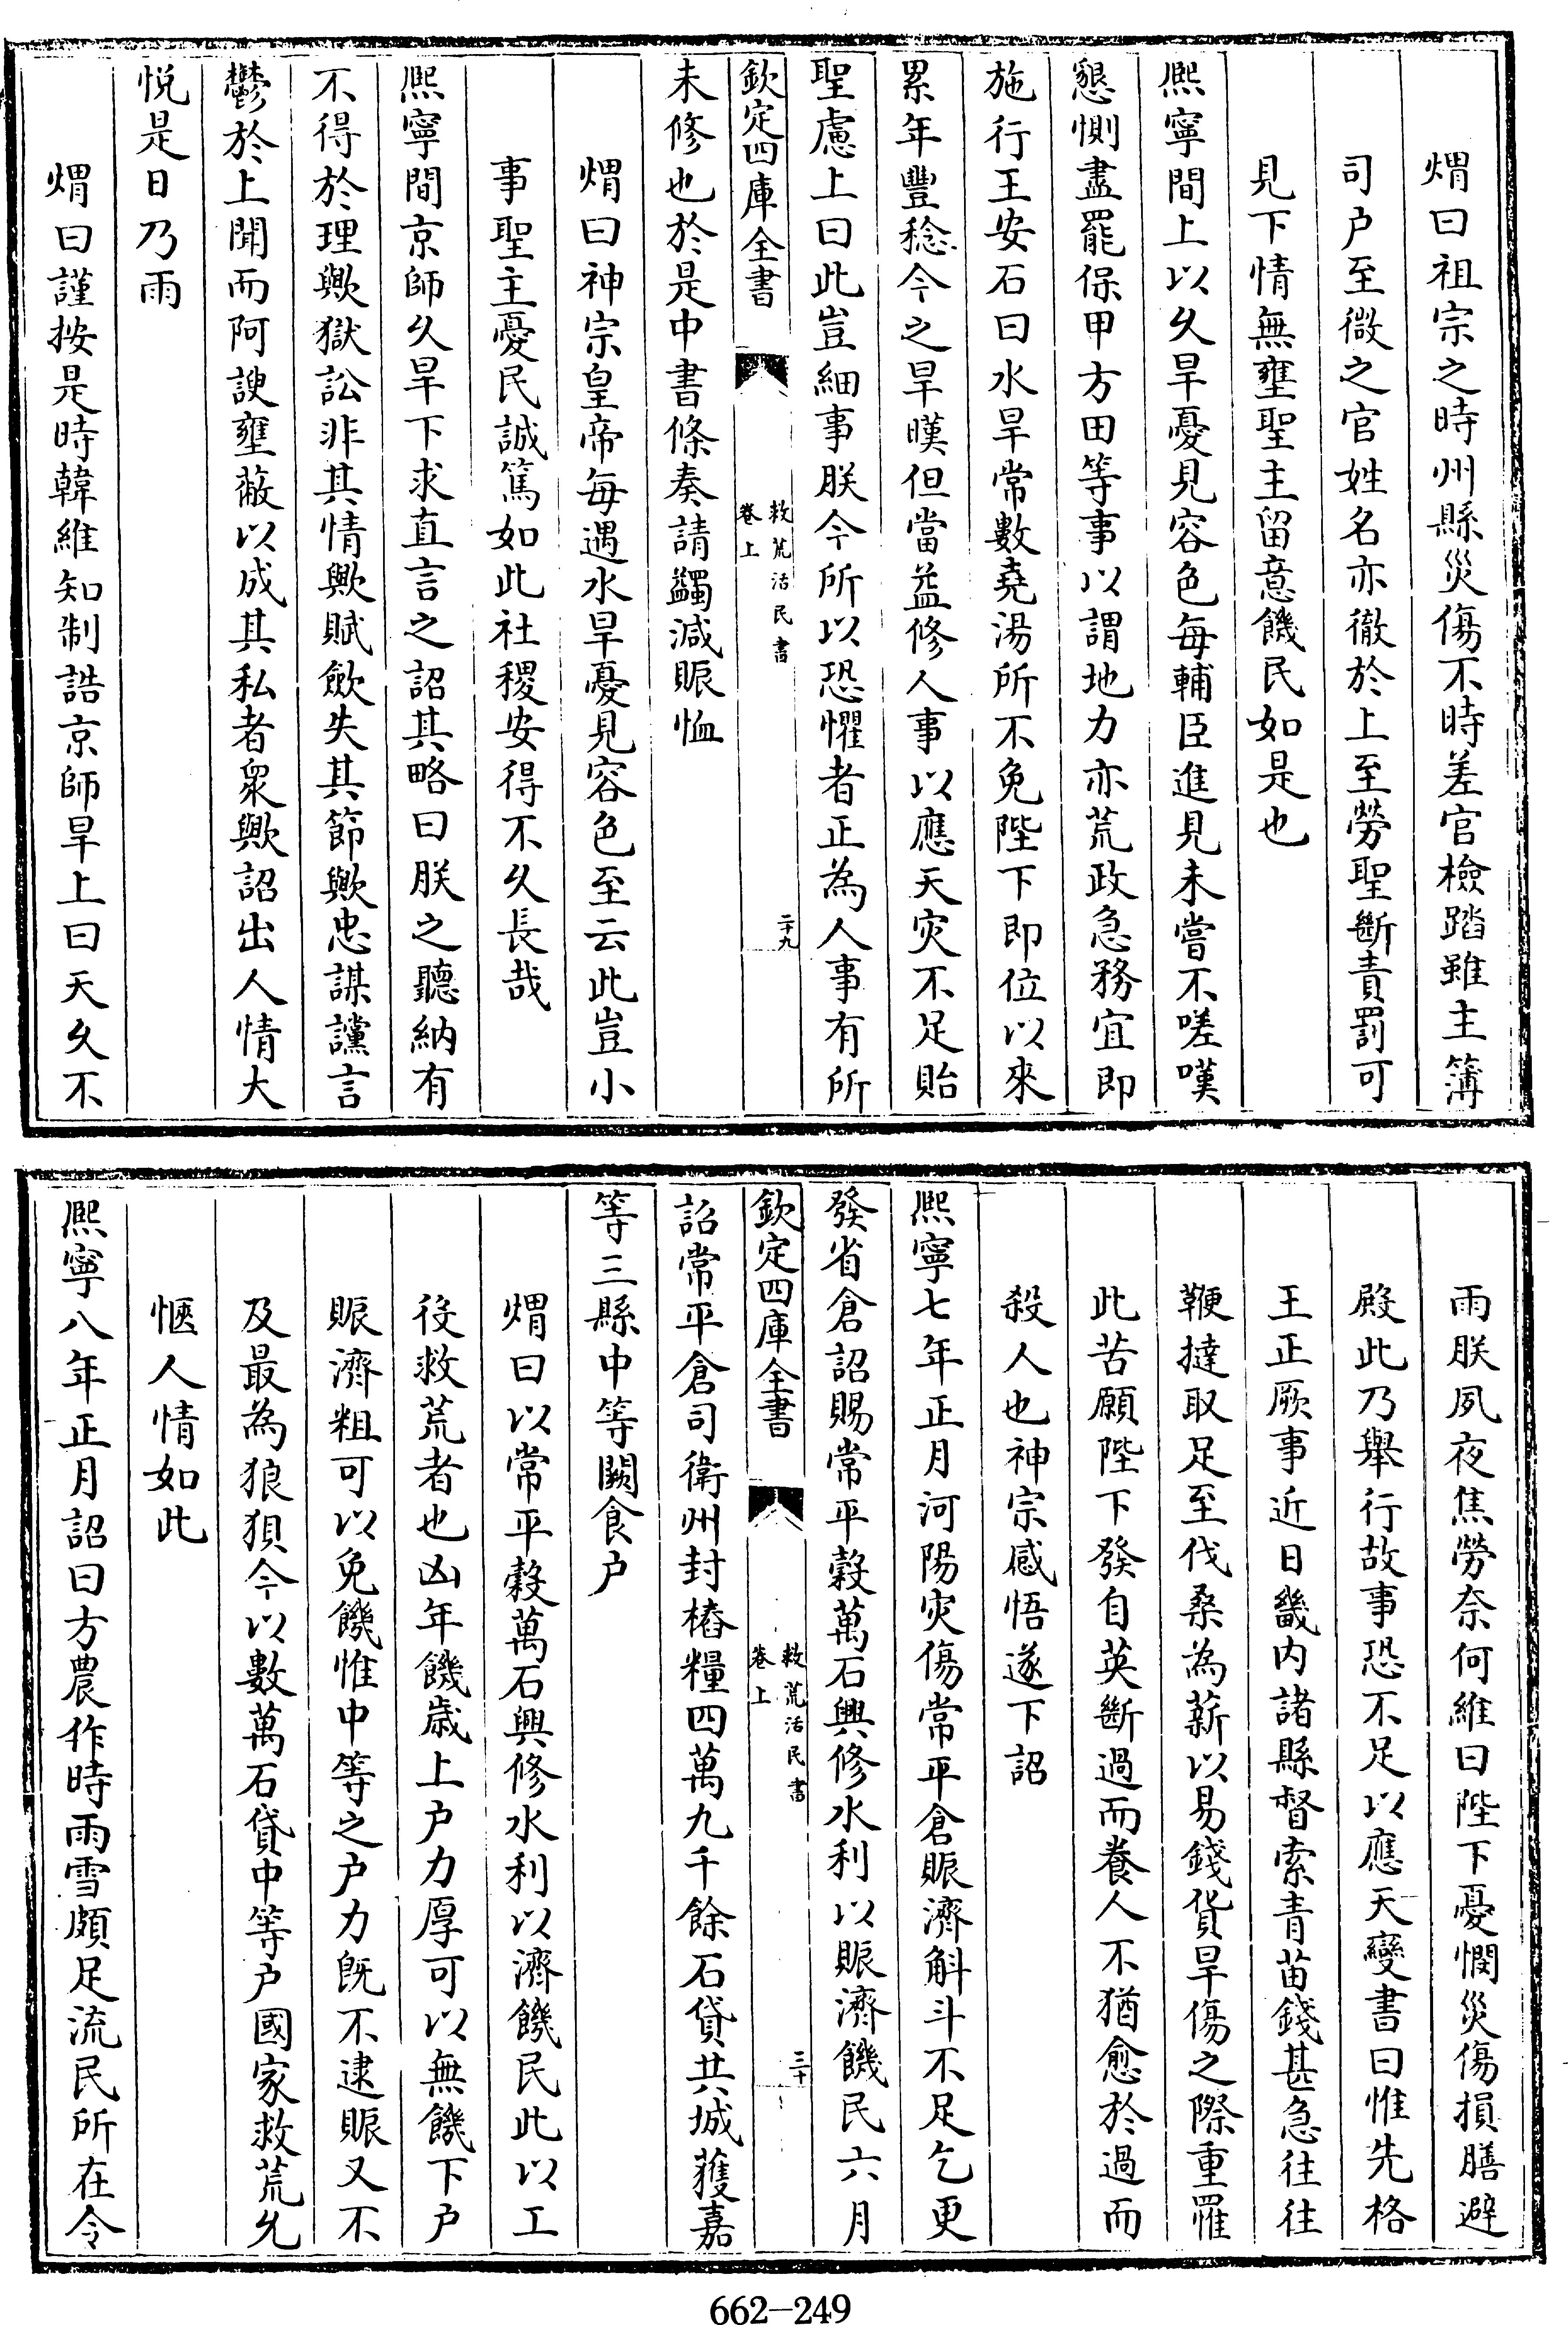 煟曰祖宗之時州縣災傷不時差官檢踏雖主簿
司户至微之官姓名亦徹於上至勞聖斷責罰可
見下情無壅聖主留意饑民如是也
熈寧間上以久旱憂見容色每輔臣進見未嘗不嗟嘆
懇惻盡罷保甲方田等事以謂地力亦荒政急務宜即
施行王安石曰水旱常數堯湯所不免陛下即位以來
累年豐稔今之旱暵但當益修人事以應天灾不足貽
聖慮上曰此豈細事朕今所以恐懼者正為人事有所
欽定四庫全書
救荒活民書
卷上
二十九
未修也於是中書條奏請蠲減賑恤
煟曰神宗皇帝每遇水旱憂見容色至云此豈小
事聖主憂民誠篤如此社稷安得不久長哉
熈寧間京師久旱下求直言之詔其略曰朕之聽納有
不得於理歟獄訟非其情歟賦歛失其節歟忠謀讜言
鬱於上聞而阿諛壅蔽以成其私者衆歟詔出人情大
悦是日乃雨
煟曰謹按是時韓維知制誥京師旱上曰天久不
雨朕夙夜焦勞奈何維曰陛下憂憫災傷損膳避
殿此乃舉行故事恐不足以應天變書曰惟先格
王正厥事近日畿内諸縣督索青苗錢甚急往往
鞭撻取足至伐桑為薪以易錢貨旱傷之際重罹
此苦願陛下發自英斷過而養人不猶愈於過而
殺人也神宗感悟遂下詔
熈寧七年正月河陽灾傷常平倉賑濟斛斗不足乞更
發省倉詔賜常平穀萬石興修水利以賑濟饑民六月
欽定四庫全書
救荒活民書
卷上
三十
詔常平倉司衛州封樁糧四萬九千餘石貸共城獲嘉
等三縣中等闕食户
煟曰以常平穀萬石興修水利以濟饑民此以工
役救荒者也凶年饑歳上户力厚可以無饑下户
賑濟粗可以免饑惟中等之户力既不逮賑又不
及最為狼狽今以數萬石貸中等户國家救荒允
愜人情如此
熈寧八年正月詔曰方農作時雨雪頗足流民所在令
662-249